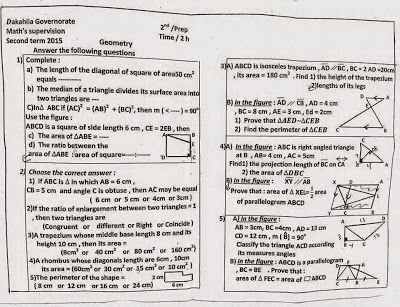 Dakahlia Governorate
Math's supervision
Second term 2015
2nd /Prep
Time / 2 h
Geometry
Answer the following questions
1) Complete :
a) The length of the diagonal of square of area50 cm2
equals ---------
b) The median of a triangle divides its surface area into
two triangles are ---
C)InΔ ABC if (AC)2 = (AB)2 + (BC)2, then m ( < ---- ) = 90°
Use the figure :
ABCD is a square of side length 6 cm , CE = 2EB , then
c) The area of ΔABE = -----
d) The ratio between the
area of ΔABE : area of square=-----:-------
2) Choose the correct answer :
1) If ABC is Δ in which AB = 6 cm ,
CB = 5 cm and angle C is obtuse , then AC may be equal
( 6 cm or 5 cm or 4cm or 3cm )
2)If the ratio of enlargement between two triangles = 1
, then two triangles are
(Congruent or different or Right or Coincide )
3)A trapezium whose middle base length 8 cm and its
height 10 cm , then its area =
(8cm2 or 40 cm2 or 80 cm2 or 160 cm2)
4)A rhombus whose diagonals length are 6cm , 10cm
its area = (60cm2 or 30 cm2 or 15 cm2 or 10 cm2 )
5)The perimeter of the shape =
2 cm
( 8 cm or 12 cm or 16 cm or 24 cm)
6 cm
3)A) ABCD is isosceles trapezium , AD // BC , BC = 2 AD =20cm
, its area = 180 cm2 . Find 1) the height of the trapezium
2)lengths of its legs
B) In the figure : AD // CB , AD = 4 cm
, BC = 8 cm , AE = 3 cm , Ed = 2cm
1) Prove that ΔAED~ΔCEB
2) Find the perimeter of ΔCEB
4)A) In the figure : ABC is right angled triangle
at B , AB = 4 cm , AC = 5cm
Find1) the projection length of BC on CA
2) the area of ΔDBC
B) In the figure : XY // AB
Prove that : area of Δ XEL= 1/2 area
of parallelogram ABCD
5) A) In the figure :
AB = 3cm, BC =4cm , AD = 13 cm
CD = 12 cm , m ( B̂ ) = 90°
Classify the triangle ACD according
its measures angles
B) In the figure : ABCD is a parallelogram
, BC = BE . Prove that :
area of Δ FEC = area of ▱ ABCD